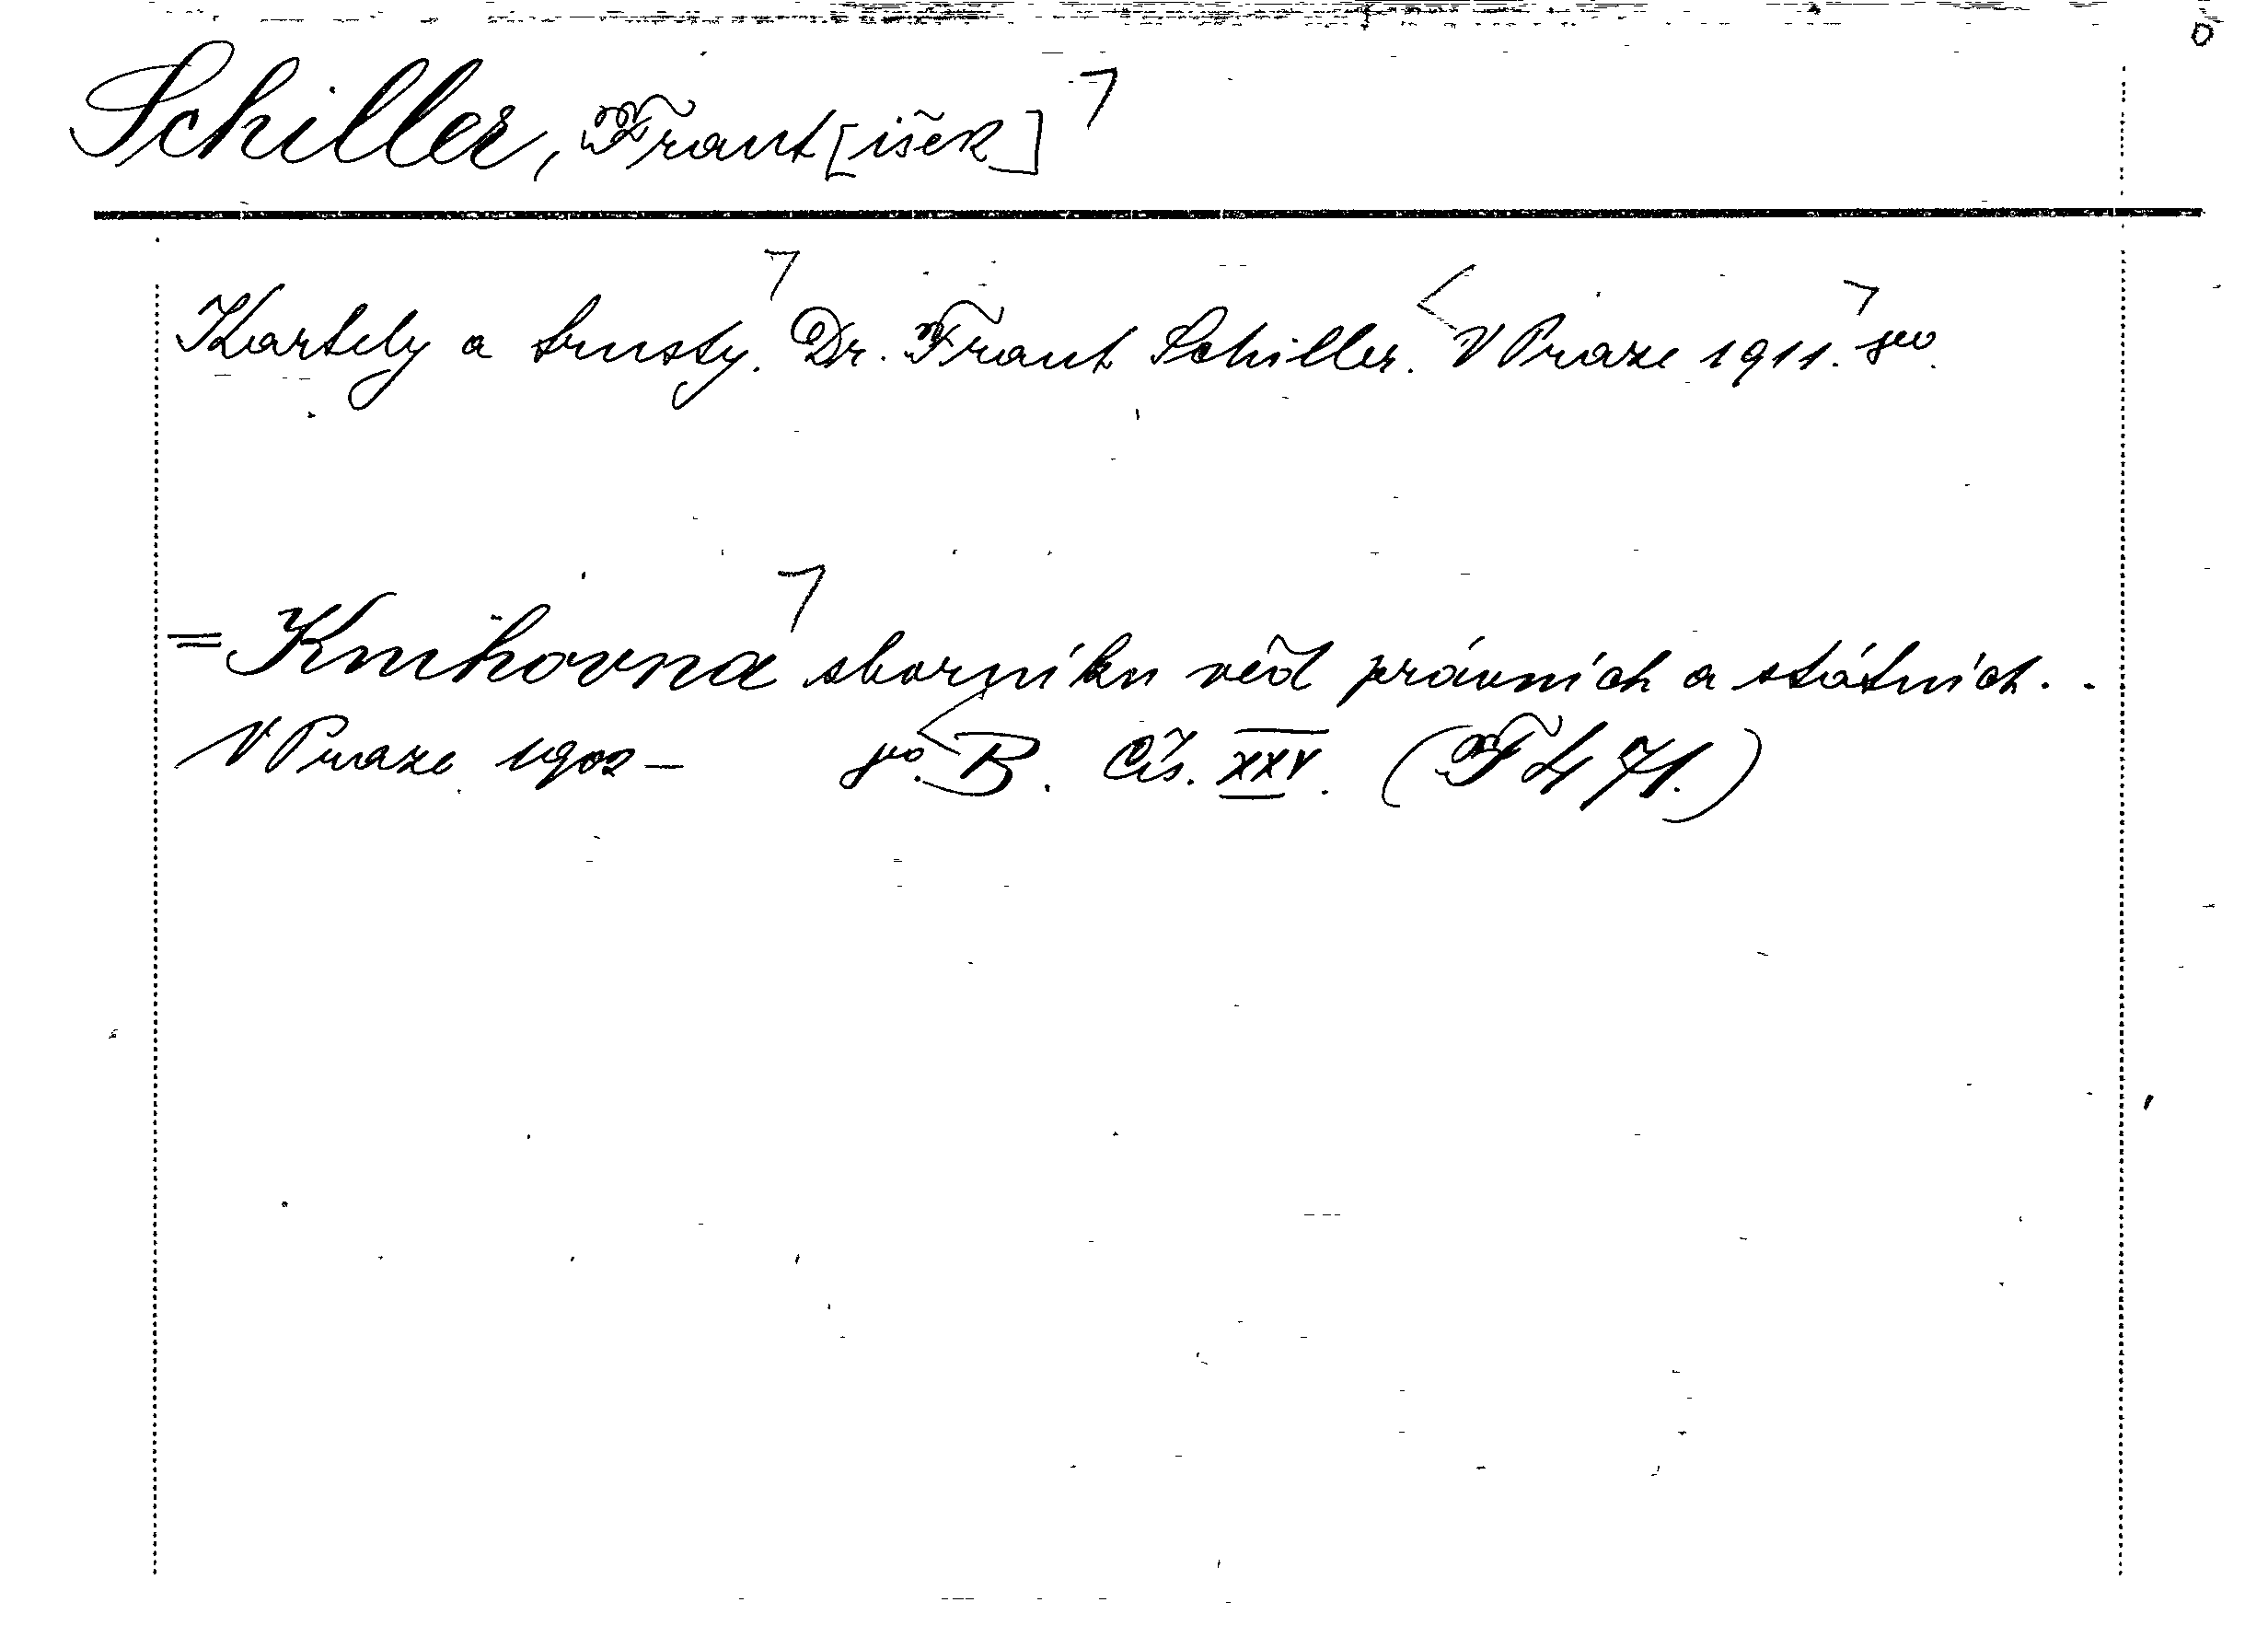 Schiller, Frant[išek]
Kartely a trusty. Dr. Frant Schiller. V Praze 1911. 8vo.
= Knihovna sborníku věd právních a státních..
V Praze 1902 — 8vo. B. Čís. XXV. (F 471.)